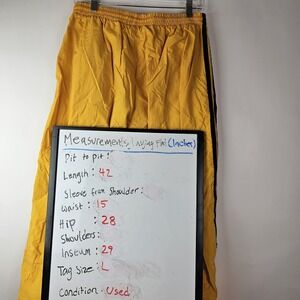 Measurements Laying Flat (Inches)
Pit to pit :
Length : 42
Sleeve from Shoulder :
Waist : 15
Hip : 28
Shoulders :
Inseum : 29
Tag Size : L
Condition : Used